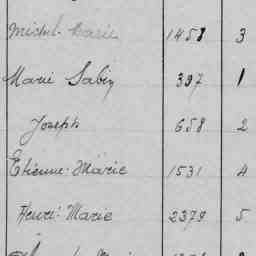 Michel-Marie 1458 3
Marie Sabin 397 1
Joseph 658 2
Etienne-Marie 1531 4
Henri-Marie 2379 5
Marie